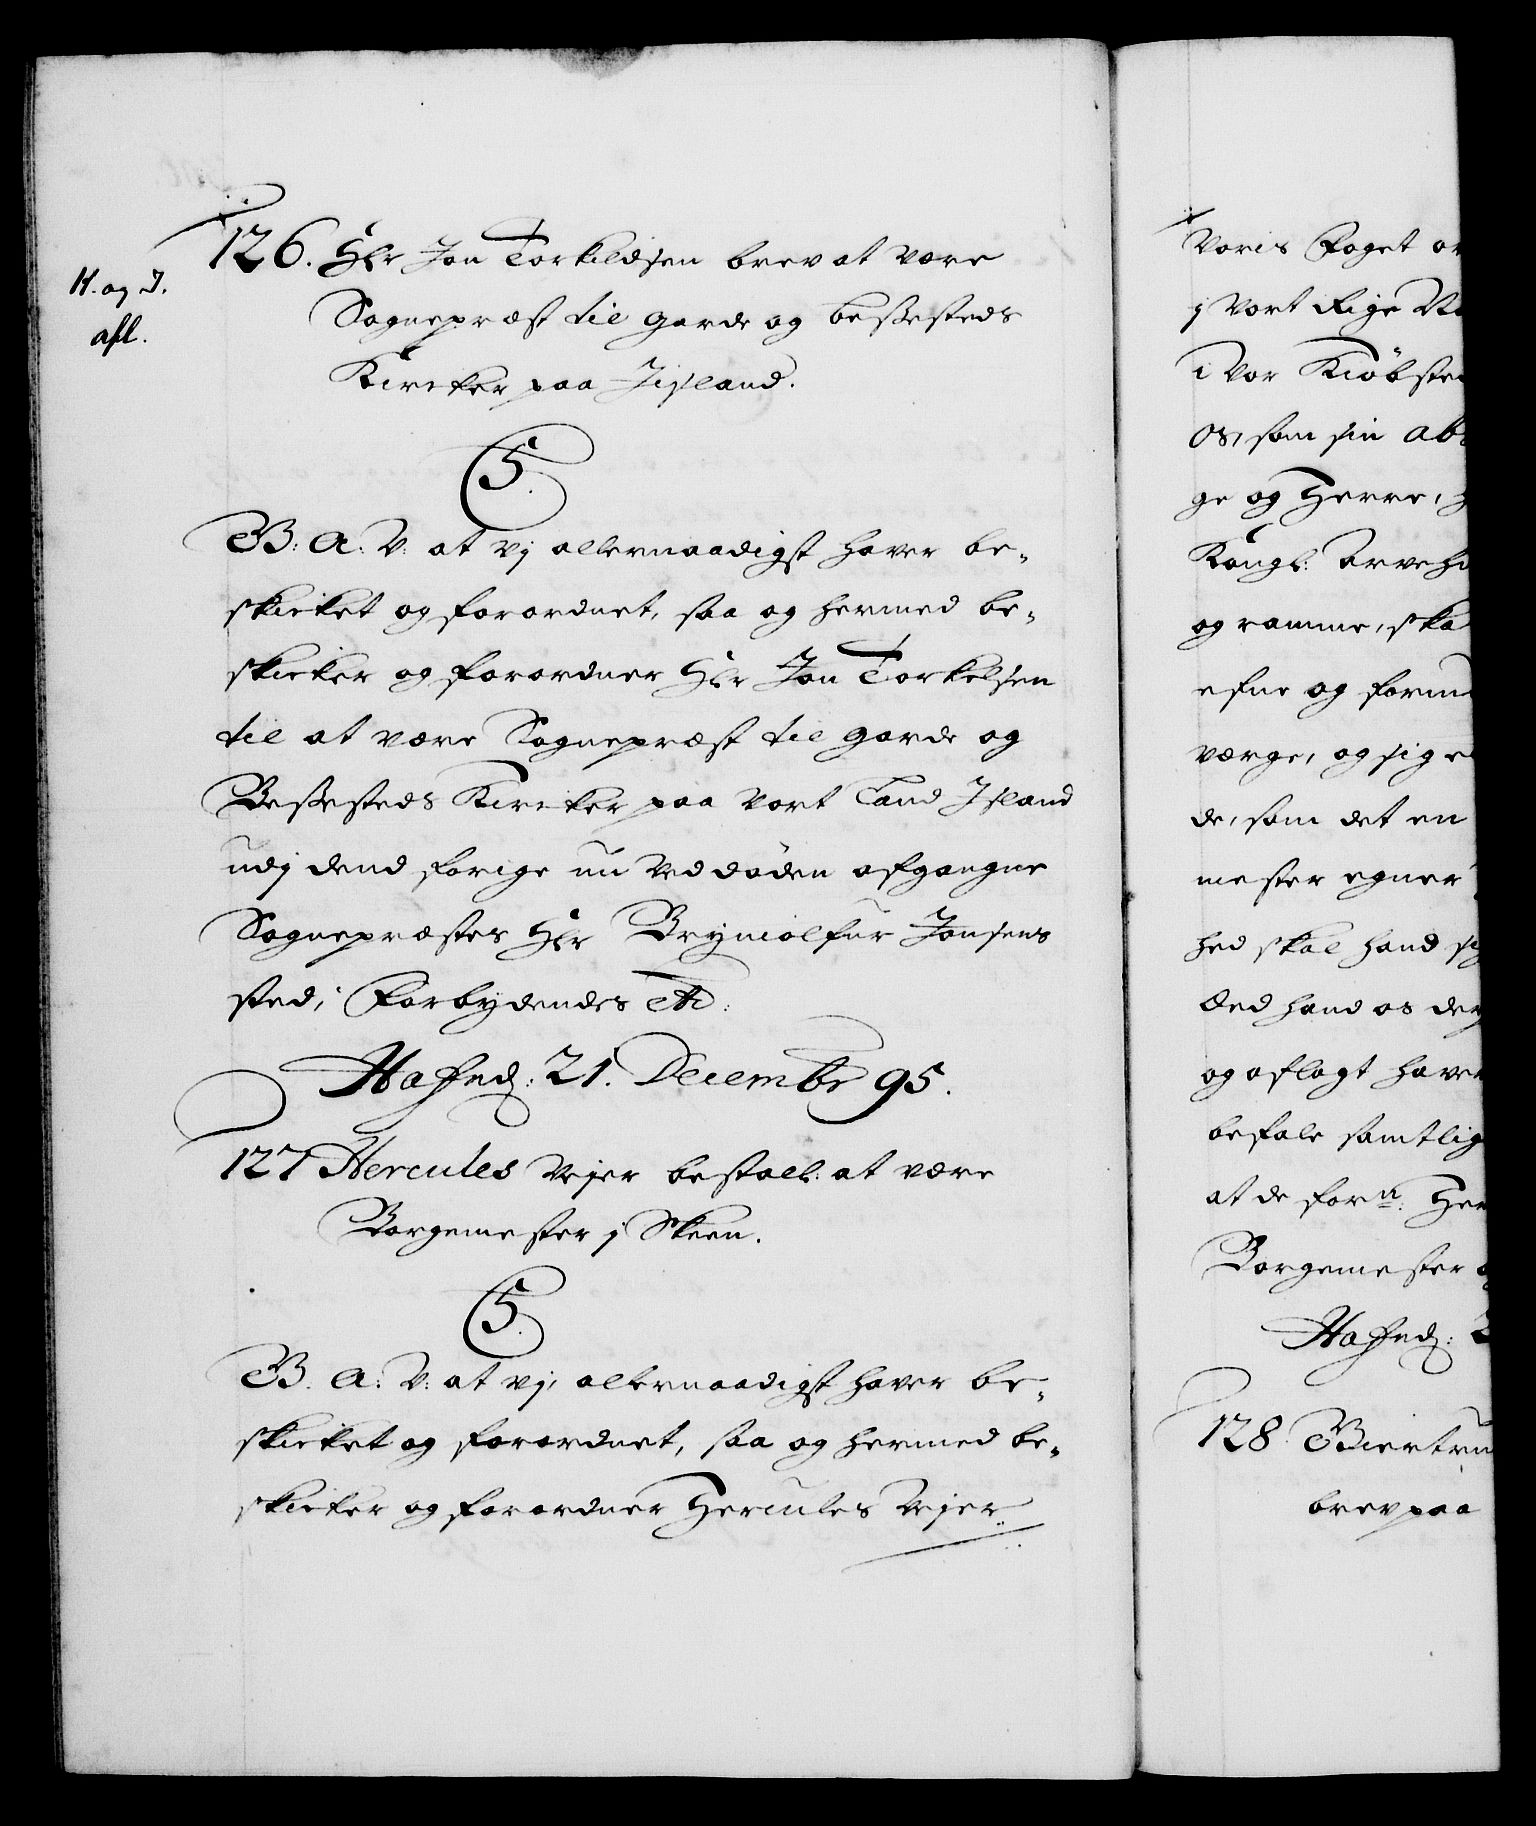 126. Hr Jon Torkildsen brev at være
Sognepræst til Garde og Bessesteds
Kircker paa Jisland.
K. og I.
afl.
C5.
G: A: V: at vj allernaadigst hafver be-
skicket og forordnet, saa og hermed be-
skicker og forordner Hr Jon Torkelsen
til at være Sognepræst til Garde og
Bessesteds Kircker paa vort Land Jsland
udj dend forige nu ved døden afgangne
Sognepræstes Hr Bryniolfur Jonsens
sted, Forbydendes etc:
Hafned: 21. Decembr 95.
127 Hercules Vejer bestall: at være
Borgemester j Skeen.
C5.
G. A: V: at vj, allernaadigst hafver be-
skicket og forordnet, saa og hermed be-
skicker og forordner Hercules Vejer
Voris Foget
j vort Rige
i vor Kiøbste
os, som sin
ge og Herre,
Kongl: Arfve
og ramme, ska
efne og formu
værge, og sig
de, som det en
mester egner
hed skal hand
Eed hand os
og aflagt hafver
befale samtlig
at de forn: Her
Borgemester
Hafned:
128
brev paa